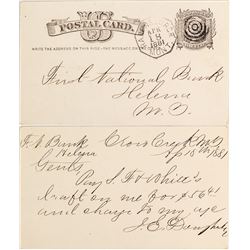 POSTAL CARD.
WRITE THE ADDRESS ON THIS SIDE - THE MESSAGE ON THE OTHER
APR
1881
First National Bank
Helena
M.T.
F. N. Bank Crow Creek, M.T.
Helena Apr 18th 1881
Gents
Pay S. F. White's
draft on me for $56 41
and charge to my
J. E.